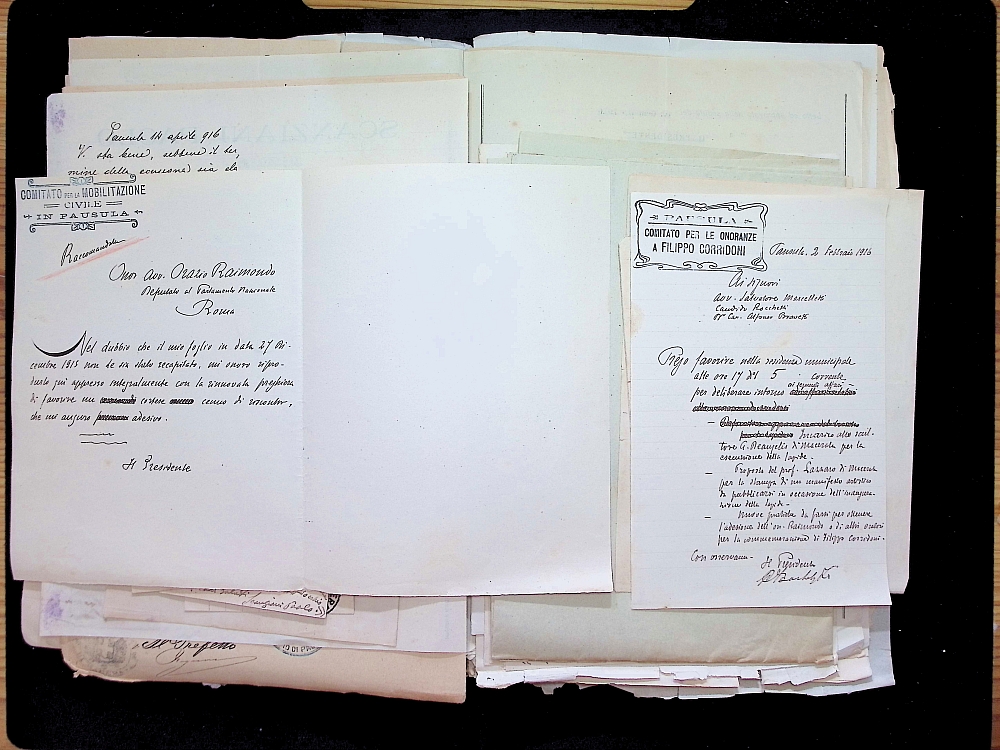 Pausula 14 aprile 916
V. sta bene, sebbene il ter,
mine della consegna sia da
COMITATO PER LA MOBILITAZIONE
CIVILE
IN PAUSULA
Raccomandata
Onor. avv. Orazio Raimondo
Deputato al Parlamento Nazionale
Roma
Nel dubbio che il mio foglio in data 27 Di-
cembre 1915 non le sia stato recapitato, mi onoro ripro-
durlo qui appresso integralmente con la rinnovata preghiera
di favorire un cortese cenno di riscontro,
che mi auguro adesivo.
Il Presidente
Il Prefetto
PAUSULA
COMITATO PER LE ONORANZE
A FILIPPO CORRIDONI
Pausula, 2 Febbraio 1916
Ai Signori
Avv. Salvatore Marcelletti
Candido Rocchetti
Alfonso
Prego favorire nella residenza municipale
alle ore 17 del 5 corrente
per deliberare intorno ai seguenti affari -
- Incarico allo scul-
tore G. Deangelis di Macerata per la
esecuzione della lapide -
- Proposta del prof. Lazzaro di Macerata
per la stampa di un manifesto artistico
da pubblicarsi in occasione dell'inaugura-
zione della lapide -
- Nuove pratiche da farsi per ottenere
l'adesione dell'on. Raimondo o di altri oratori
per la commemorazione di Filippo Corridoni.
Con osservanza -
Il Presidente